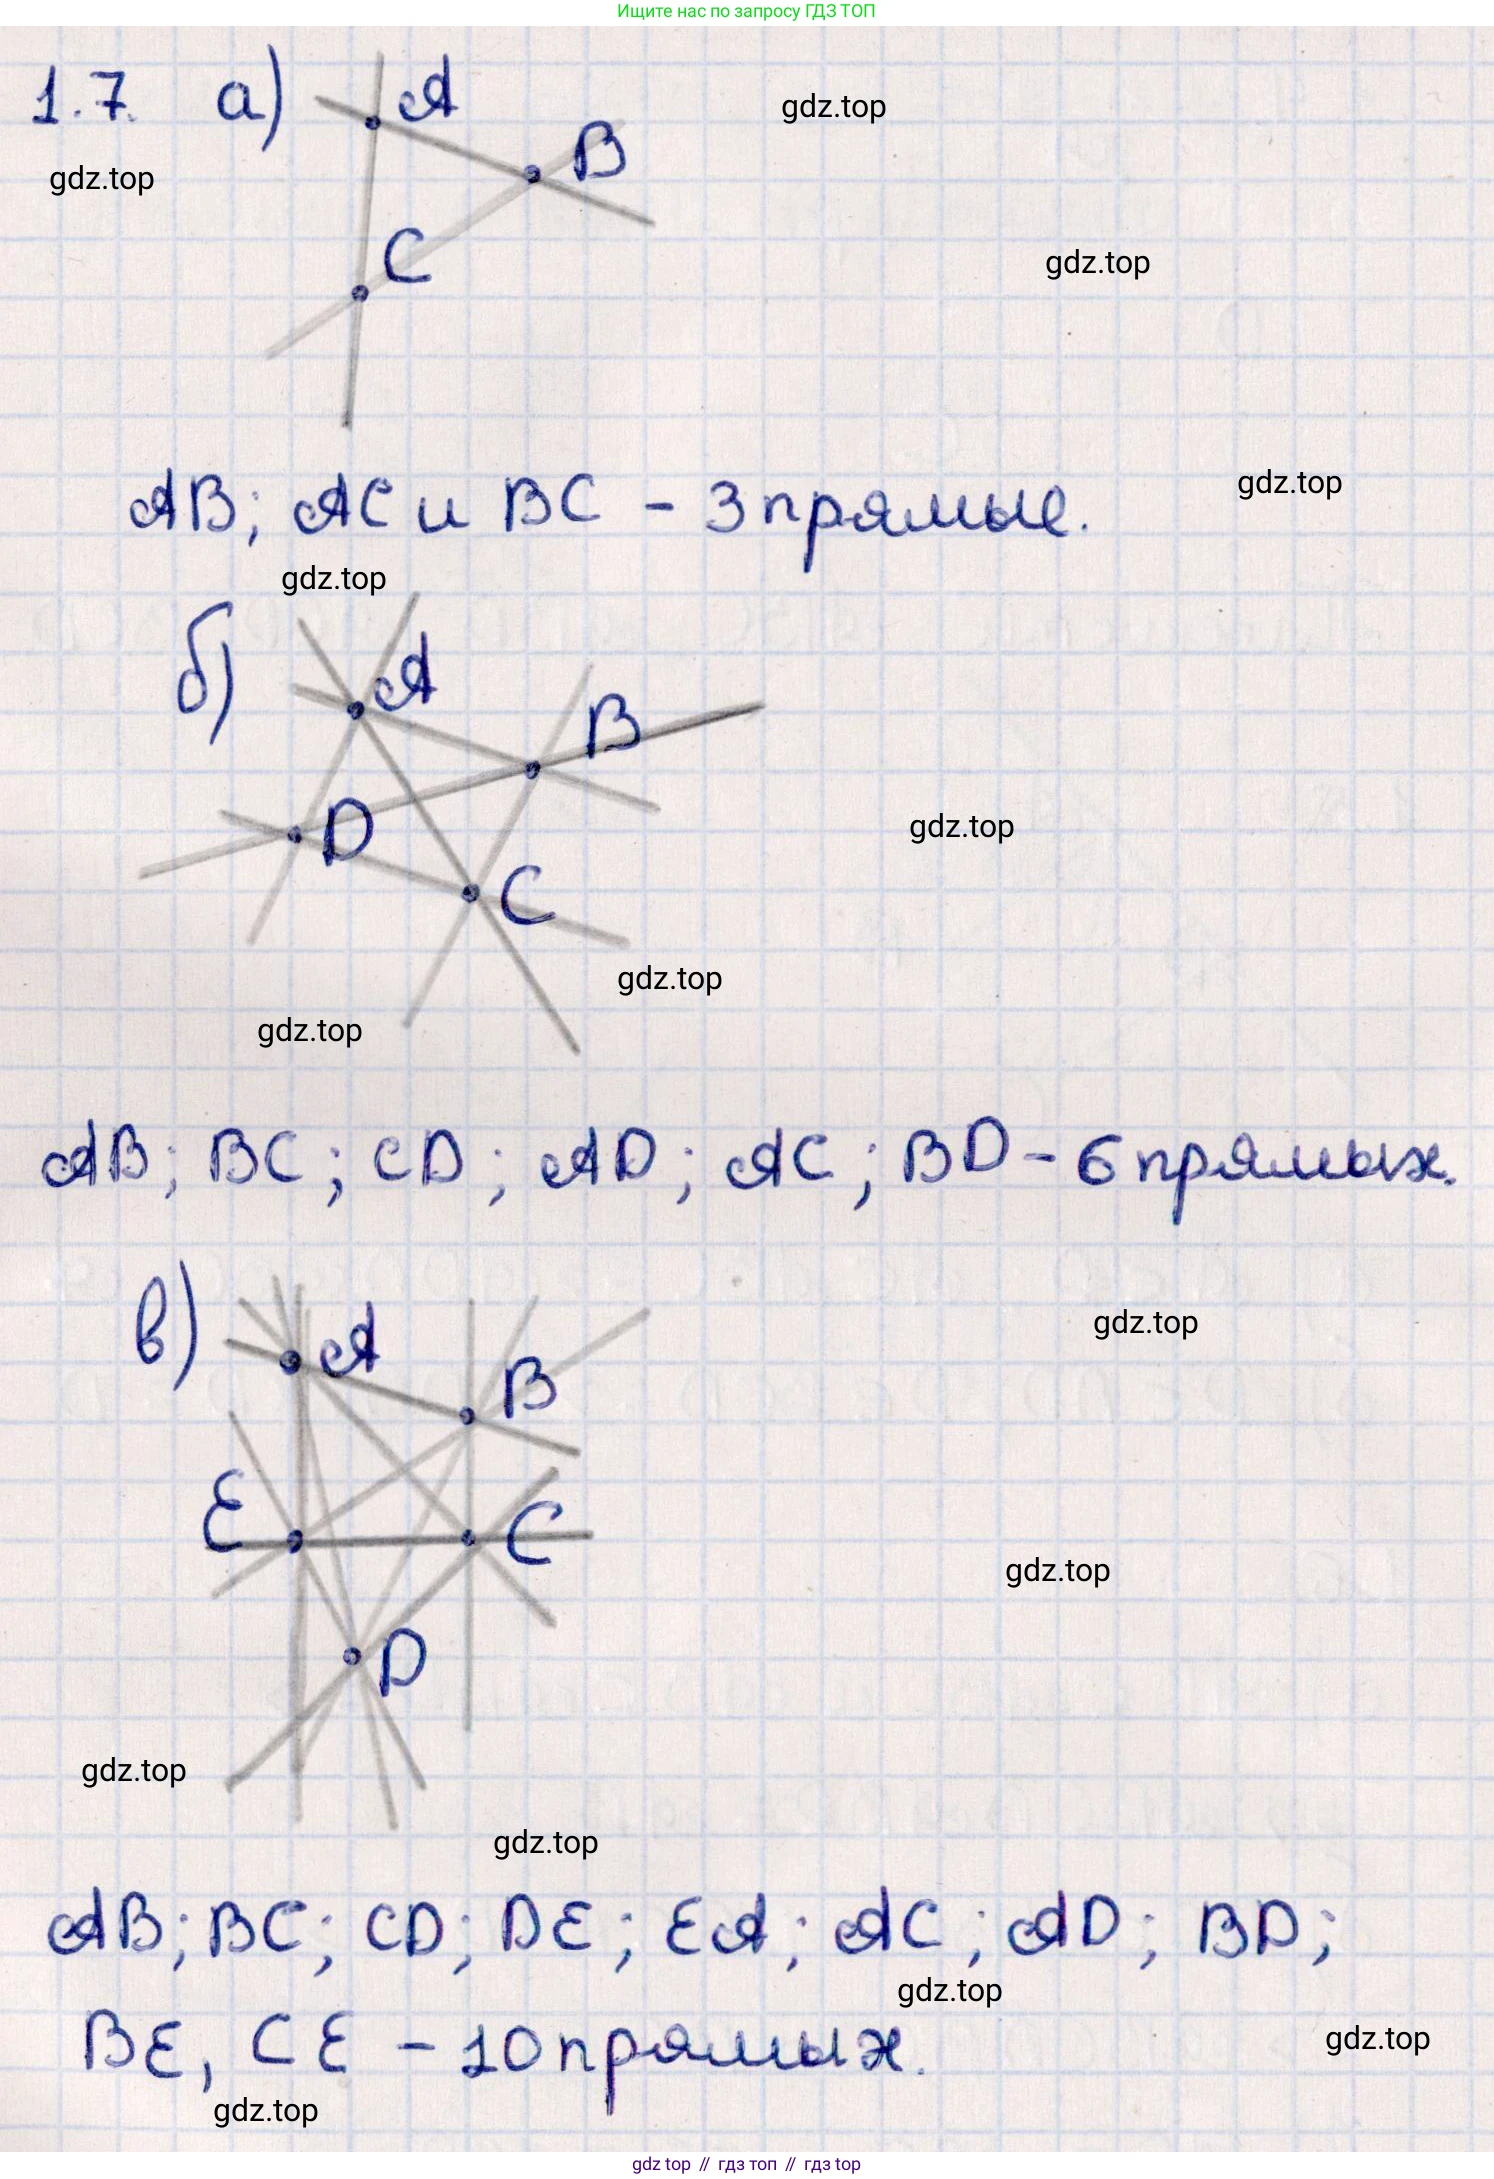 Ищите нас по запросу ГДЗ ТОП
1.7. а) A
gdz.top
B
gdz.top
C
gdz.top
AB; AC и BC - 3 прямые.
gdz.top
gdz.top
б) A
B
D
gdz.top
C
gdz.top
gdz.top
AB; BC; CD; AD; AC; BD - 6 прямых.
в) A
gdz.top
B
E C
gdz.top
D
gdz.top
gdz.top
AB; BC; CD; DE; EA; AC; AD; BD;
gdz.top
BE, CE - 10 прямых.
gdz.top
gdz.top
gdz top // гдз топ // гдз top